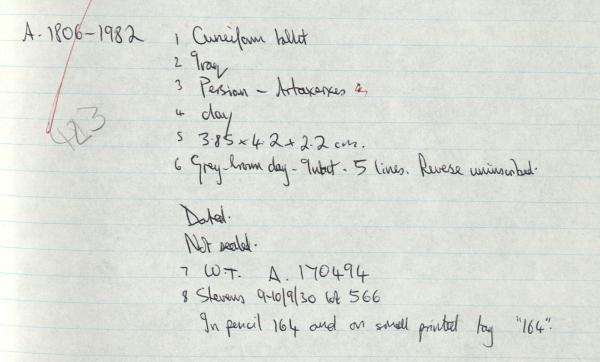 A. 1806-1982 1 Cuneiform tablet
2 Iraq
3 Persian - Artaxerxes
4 clay
423
5 3.85 x 4.2 x 2.2 cm.
6 Grey-brown clay - Intact - 5 lines. Reverse uninscribed.
Dated.
Not sealed.
7 W.T. A. 170494
8 Stevens 9-10/9/30 lot 566
In pencil 164 and on small printed tag "164".